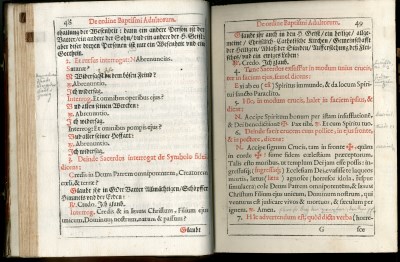 48 De ordine Baptismi Adultorum.
thailung der Wesenheit: dann ein andere Person ist der
Vatter/ein andere der Sohn/und ein andere der H. Geist:
aber diser dreyen Personen ist nur ein Wesenheit und ein
Gottheit.
2. Et rursus interrogat: N. Abrenuncias
Satanæ?
N. Widersagst du dem bösen Feind?
℟. Abrenuncio.
Ich widersag.
Interrog. Et omnibus operibus ejus?
Und allen seinen Wercken?
℟. Abrenuncio.
Ich widersag.
Interrog. Et omnibus pompis ejus?
Und aller seiner Hoffart?
℟. Abrenuncio.
Ich widersag.
3. Deinde Sacerdos interrogat de Symbolo fidei,
dicens:
Credis in Deum Patrem omnipotentem, Creatorem
cœli, & terræ?
Glaubst du in Gott Vatter Allmächtigen/Schöpffer
Himmels und der Erden?
℟. Credo. Ich glaub.
Interrog. Credis & in Jesum Christum, Filium ejus
unicum, Dominum nostrum, natum & passum?
Glaubst
De ordine Baptismi Adultorum. 49
Glaubst du auch in den H. Geist/ein heilige/allge-
meine/Christlich-Catholische Kirchen/Gemeinschafft
der Heiligen/Ablaß der Sünden/Aufferstehung deß Flei-
sches/und ein ewiges Leben?
℟. Credo. Ich glaub.
4. Tunc Sacerdos exsufflat
in faciem ejus, semel dicens:
Exi ab eo spiritus immunde, & da locum Spiri-
tui sancto Paraclito.
5. Hic in modum crucis, halet in faciem ipsius, &
dicat:
N. Accipe Spiritum bonum per istam insufflationem,
& Dei benedictionem ✠. Pax tibi. ℟. Et cum Spiritu tuo.
6. Deinde facit crucem cum pollice, in ejus fronte,
& in pectore, dicens:
N. Accipe signum Crucis, tam in fronte ✠, quàm
in corde ✠: sume fidem cœlestium præceptorum.
Talis esto moribus, ut templum Dei jam esse possis: in-
gressusque Ecclesiam Dei, evasisse te laqueos
mortis, lætus agnosce: horresce idola, respue
simulacra: cole Deum Patrem omnipotentem, & Jesum
Christum Filium ejus unicum, Dominum nostrum, qui
venturus est judicare vivos & mortuos, & sæculum per
ignem. ℟. Amen.
7.
G